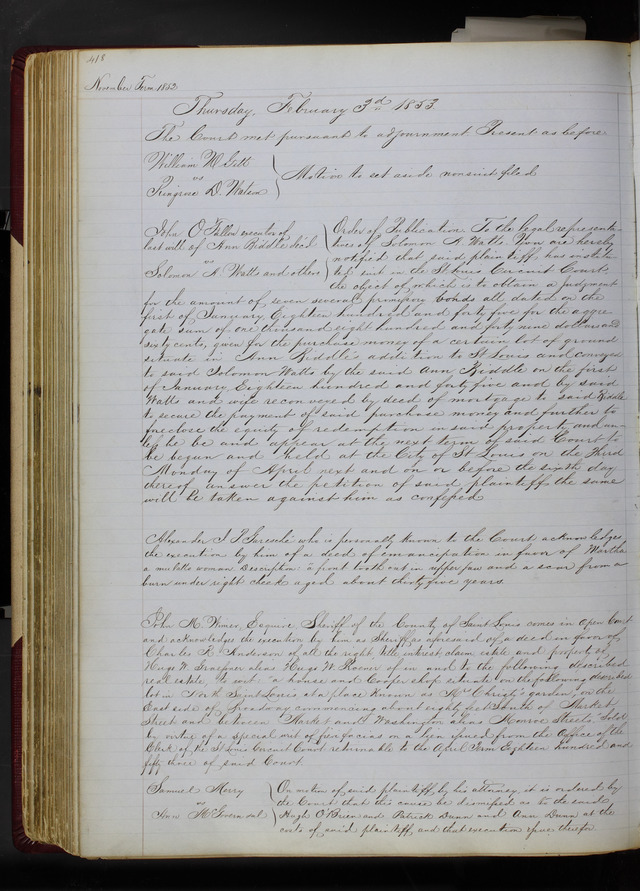 418
November Term 1852
Thursday, February 3d 1853
The Court met pursuant to adjournment Present as before
William W. Gitt
vs
Ringrose D. Watson
Motion to set aside nonsuit filed
John O'Fallon executor of
last will of Ann Biddle decd
vs
Solomon A. Watts and others
Order of Publication. To the legal representa-
tives of Solomon A. Watts. You are hereby
notified that said plaintiff has institu-
ted suit in the St Louis Circuit Court
the object of which is to obtain a judgment
for the amount of seven several promissory bonds all dated on the
first of January Eighteen hundred and forty five for the aggre-
gate sum of one thousand eight hundred and forty nine dollars and
sixty cents, given for the purchase money of a certain lot of ground
situate in Ann Biddle's addition to St Louis and conveyed
to said Solomon Watts by the said Ann Biddle on the first
of January Eighteen hundred and forty five and by said
Watts and wife reconveyed by deed of mortgage to said Biddle
to secure the payment of said purchase money and further to
foreclose the equity of redemption in said property and un-
less he be and appear at the next term of said Court to
be begun and held at the City of St Louis on the Third
Monday of April next and on or before the sixth day
thereof answer the petition of said plaintiff the same
will be taken against him as confessed
Alexander J P Garesché who is personally known to the Court acknowledges
the execution by him of a deed of emancipation in favor of Martha
a mulatto woman Description: a front tooth out in upper jaw and a scar from a
burn under right cheek aged about thirty five years.
John M. Wimer, Esquire, Sheriff of the County of Saint Louis comes in open Court
and acknowledges the execution by him as Sheriff as aforesaid of a deed in favor of
Charles R. Anderson of all the right title interest claim estate and property of
Hugo W. Graefner alias Hugo W. of in and to the following described
real estate, to wit "a house and Cooper shop situate on the following described
lot in North Saint Louis at a place known as Mrs Christy's garden, on the
East side of Broadway commencing about eighty feet South of Market
Street and between Market and Washington alias Monroe Streets" Sold
by virtue of a special writ of fieri facias on a lien issued from the Office of the
Clerk of the St Louis Circuit Court returnable to the April Term Eighteen hundred and
fifty three of said Court
Samuel Merry
vs
Ann McGovern et al
On motion of said plaintiff by his attorney it is ordered by
the Court that this cause be dismissed as to the said
Hugh O'Brien and Patrick Dunn and Ann Dunn at the
costs of said plaintiff, and that execution issue therefor.